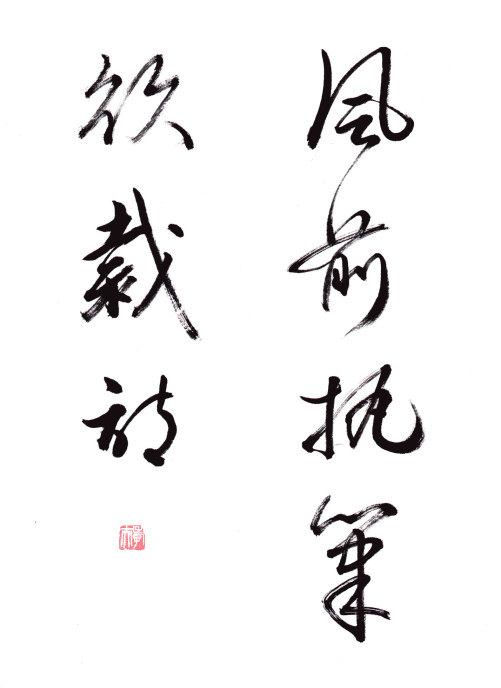 風前執筆
欲裁詩